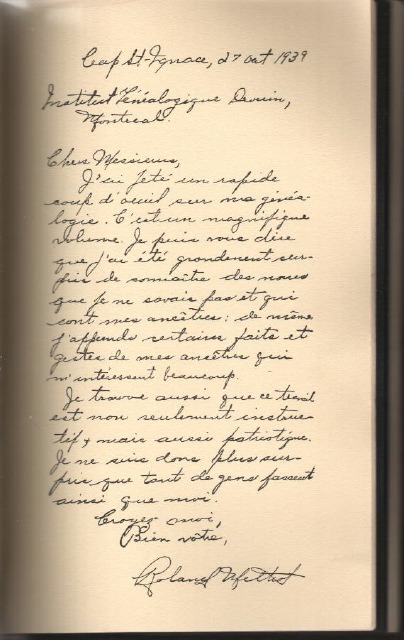 Cap St-Ignace, 27 oct 1939
Institut Généalogique Drouin,
Montreal.
Chers Messieurs,
J'ai jeté un rapide
coup d'oeuil sur ma généa-
logie. C'est un magnifique
volume. Je puis vous dire
que j'ai été grandement sur-
pris de connaître des noms
que je ne savais pas et qui
sont mes ancêtres; de même
j'apprends certains faits et
gestes de mes ancêtres qui
m'intéressent beaucoup.
Je trouve aussi que ce travail
est non seulement instruc-
tif, mais aussi patriotique.
Je ne suis donc plus sur-
pris que tant de gens fassent
ainsi que moi.
Croyez-moi,
Bien vôtre,
Roland